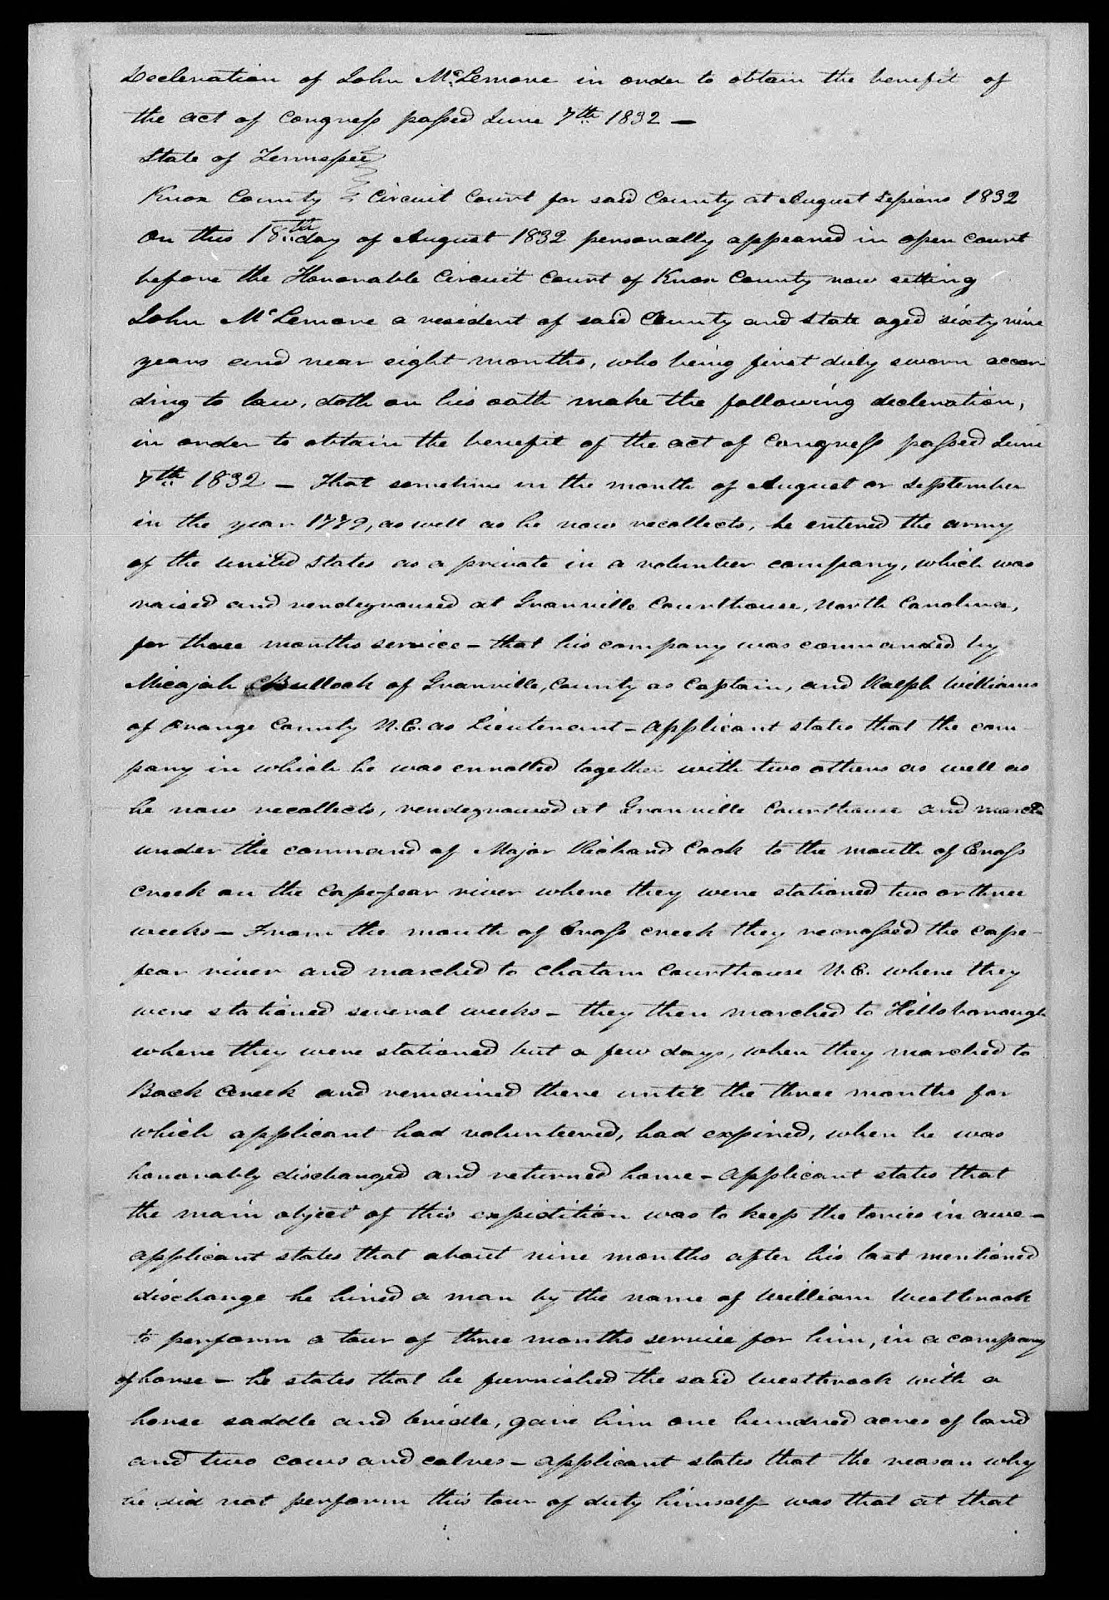 Declaration of John McLemore in order to obtain the benefit of
the act of Congress passed June 7th 1832 —
State of Tennessee
Knox County Circuit Court for said County at August sessions 1832
On this 18th day of August 1832 personally appeared in open court
before the Honorable Circuit Court of Knox County now sitting
John McLemore a resident of said County and State aged sixty nine
years and near eight months, who being first duly sworn accor
ding to law, doth on his oath make the following declaration,
in order to obtain the benefit of the act of Congress passed June
7th 1832 — That sometime in the month of August or September
in the year 1779, as well as he now recollects, he entered the army
of the united States as a private in a volunteer company, which was
raised and rendezvoused at Granville Courthouse, North Carolina,
for three months service — that his company was commanded by
Micajah Bullock of Granville, County as Captain, and Ralph Williams
of Orange County N.C. as Lieutenant — applicant states that the com-
pany in which he was enrolled together with two others as well as
he now recollects, rendezvoused at Granville Courthouse and marcd
under the command of Major Richard Cook to the mouth of Cross
Creek on the Cape-fear river where they were stationed two or three
weeks — From the mouth of Cross creek they recrossed the Cape-
fear river and marched to Chatam Courthouse N.C. where they
were stationed several weeks — they then marched to Hillsborough
where they were stationed but a few days, when they marched to
Back Creek and remained there until the three months for
which applicant had volunteered, had expired, when he was
honorably discharged and returned home — applicant states that
the main object of this expidition was to keep the tories in awe —
applicant states that about nine months after his last mentioned
discharge he hired a man by the name of William Westbrook
to perform a tour of three months service for him, in a company
of horse — he states that he furnished the said Westbrook with a
horse saddle and bridle, gave him one hundred acres of land
and two cows and calves — applicant states that the reason why
he did not perform this tour of duty himself was that at that